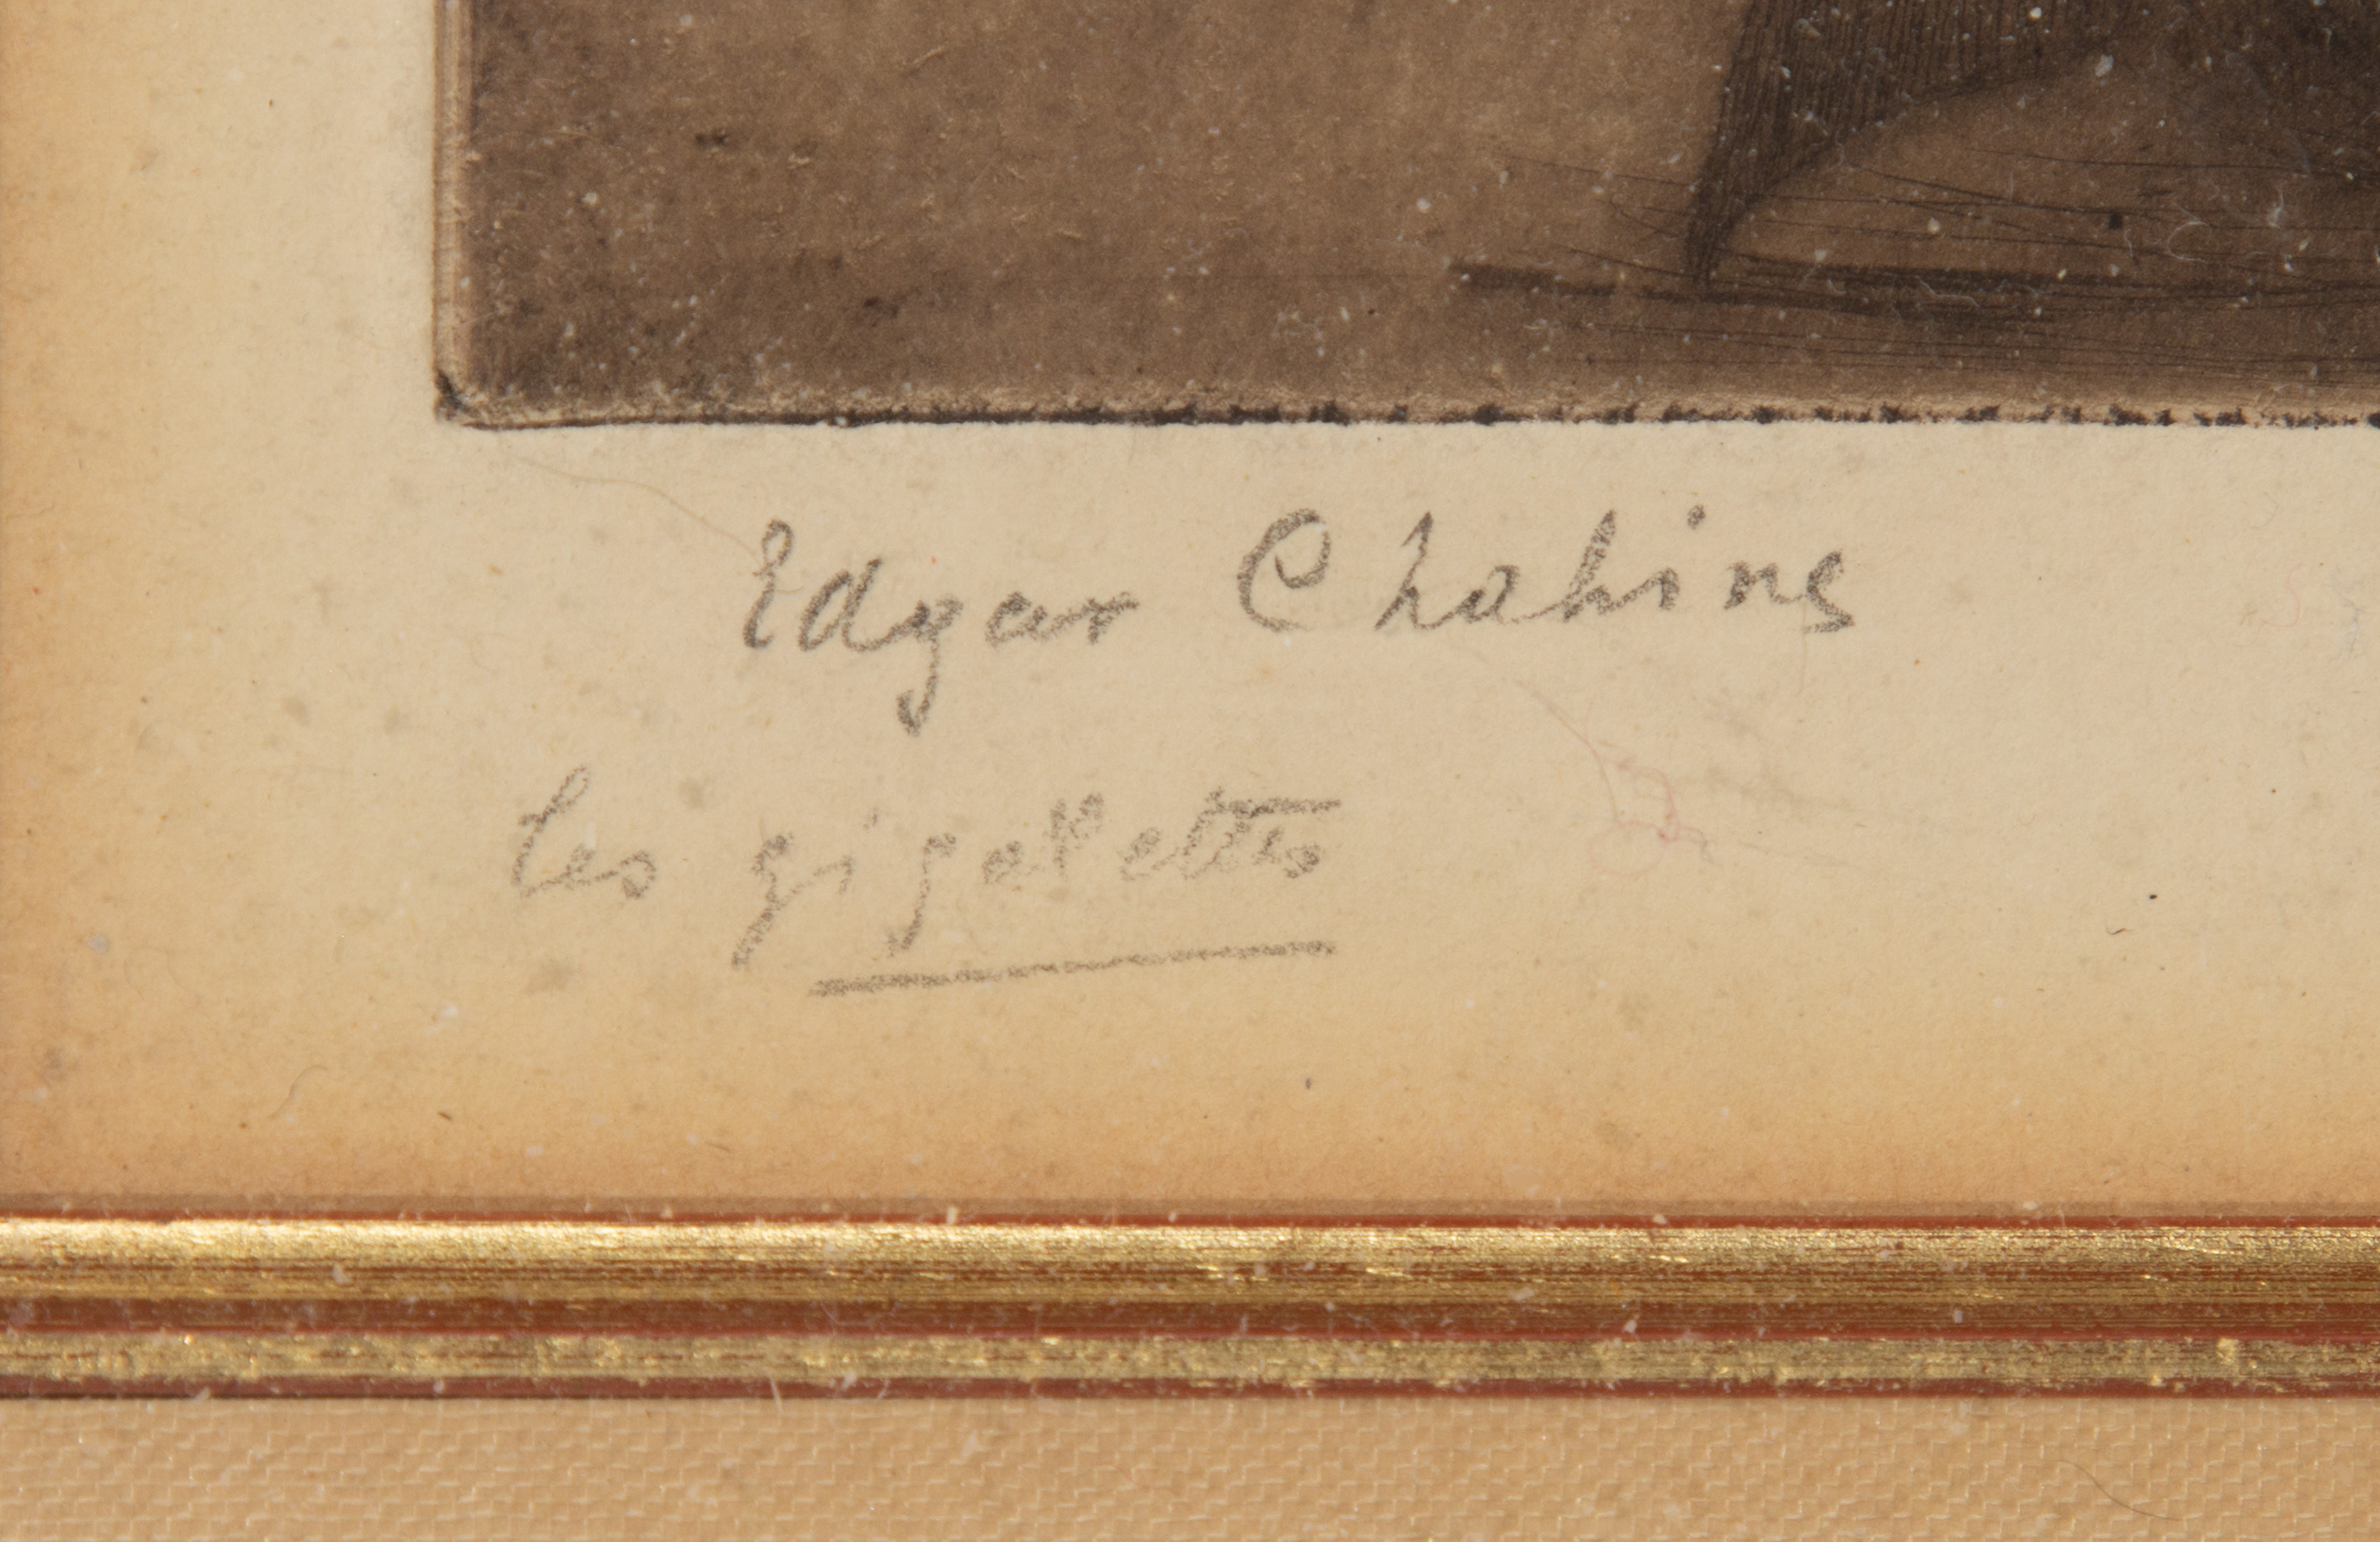 Edgar Chahine
Les gigolettes